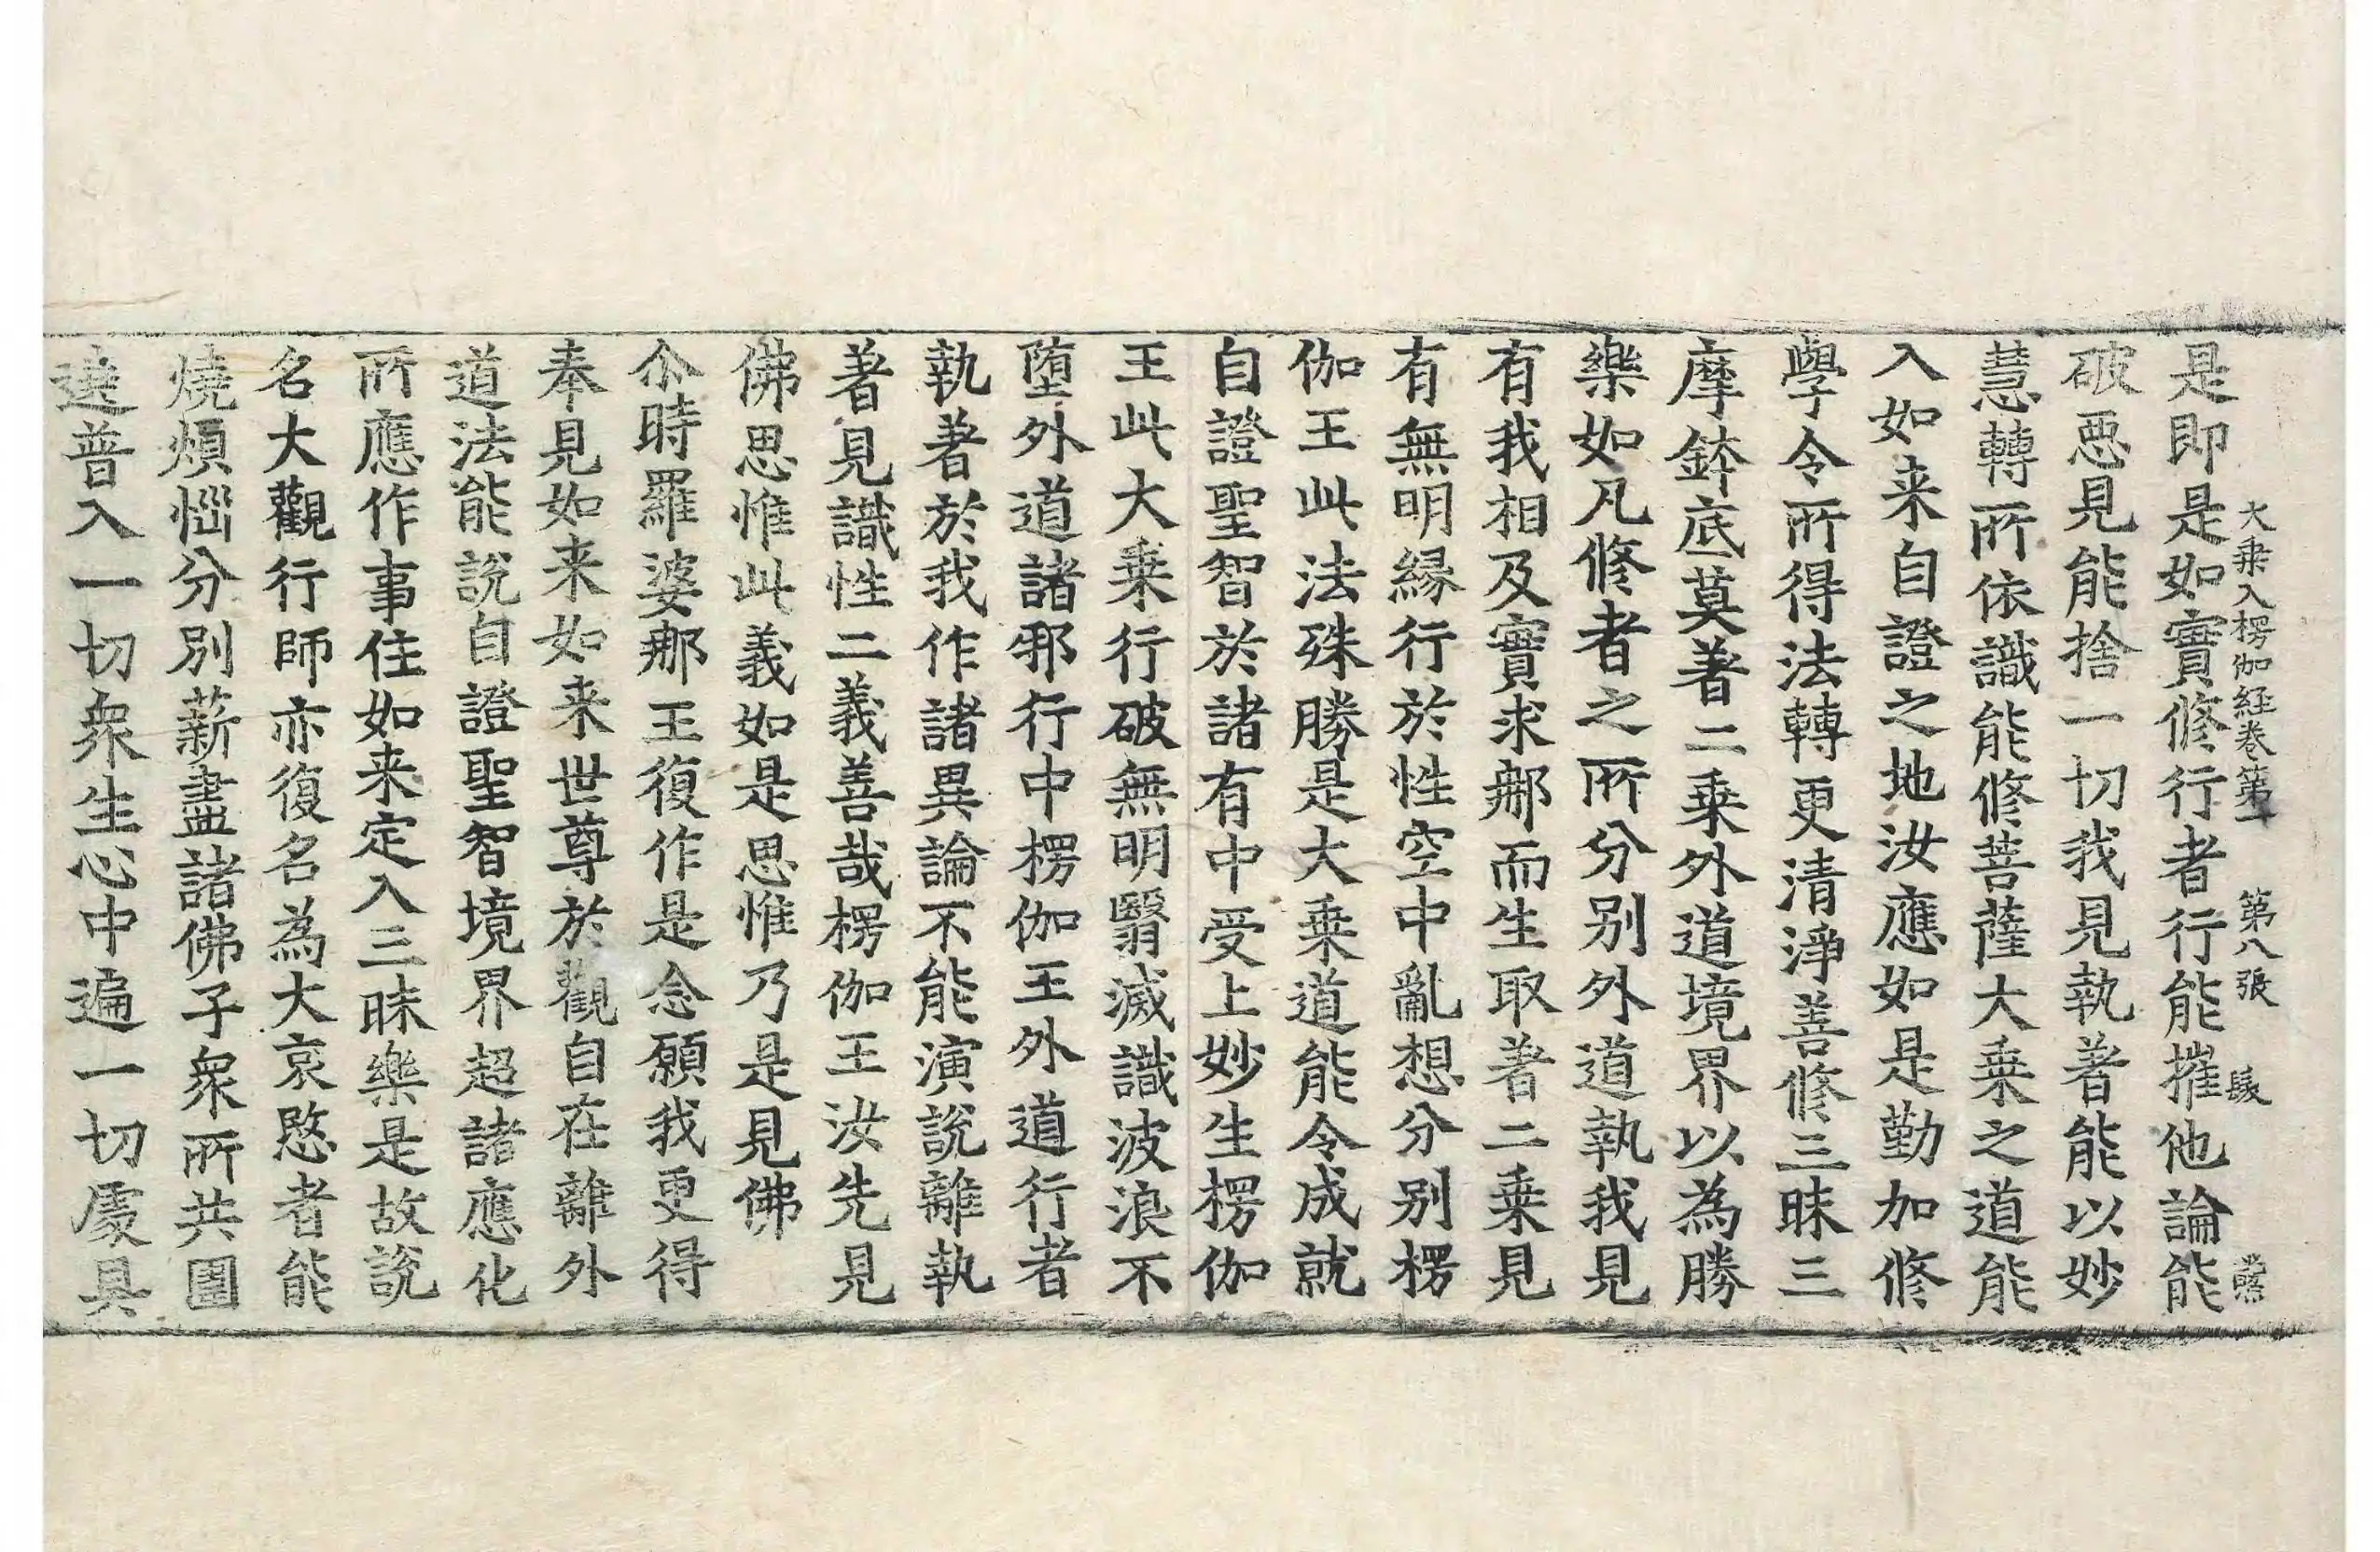 大乗入楞伽経卷第一 第八張 髮
是即是如實修行者行能摧他論能
破惡見能捨一切我見執著能以妙
慧轉所依識能修菩薩大乗之道能
入如来自證之地汝應如是勤加修
學令所得法轉更清淨善修三昧三
摩鉢底莫著二乗外道境界以為勝
樂如凡修者之所分别外道執我見
有我相及實求那而生取著二乗見
有無明縁行於性空中亂想分别楞
伽王此法殊勝是大乗道能令成就
自證聖智於諸有中受上妙生楞伽
王此大乗行破無明翳滅識波浪不
墮外道諸邪行中楞伽王外道行者
執著於我作諸異論不能演說離執
著見識性二義善哉楞伽王汝先見
佛思惟此義如是思惟乃是見佛
尒時羅婆那王復作是念願我更得
奉見如来如来世尊於觀自在離外
道法能說自證聖智境界超諸應化
所應作事住如来定入三昧樂是故說
名大觀行師亦復名為大哀愍者能
燒煩惱分別薪盡諸佛子衆所共圍
遶普入一切衆生心中遍一切處具